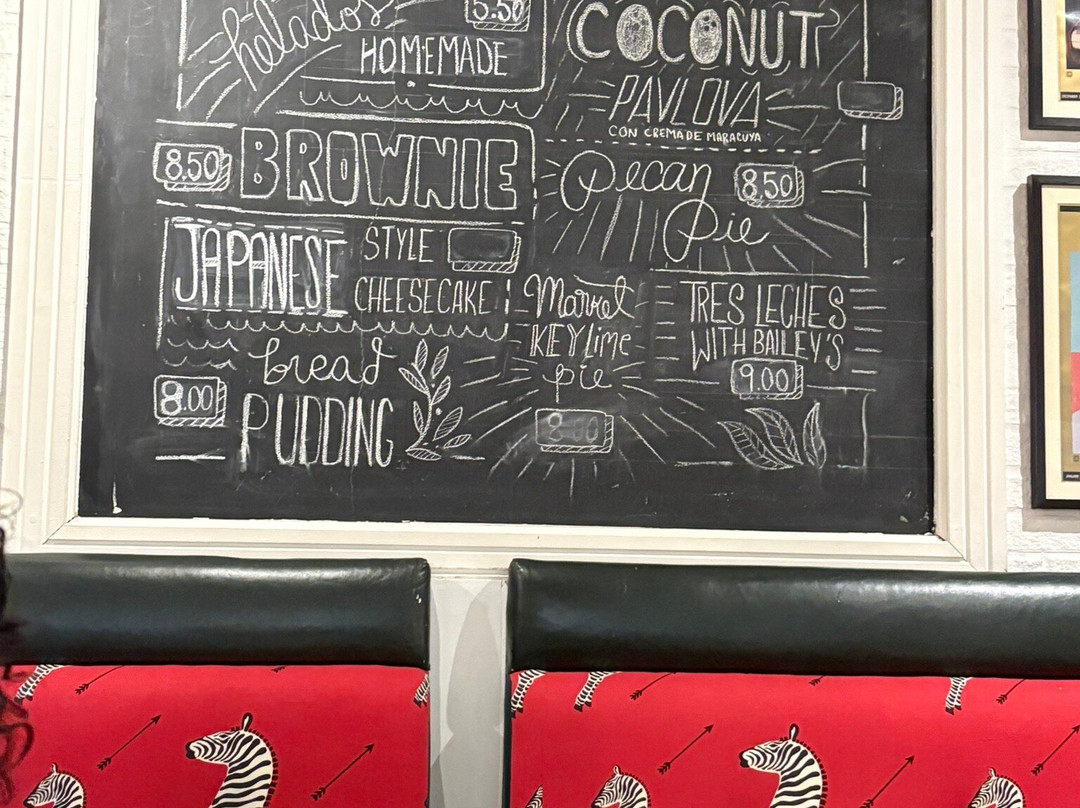 helados 5.50
HOMEMADE
8.50 BROWNIE
JAPANESE STYLE
CHEESECAKE
bread
8.00 PUDDING
COCONUT
PAVLOVA
CON CREMA DE MARACUYA
Pecan 8.50
Pie
Market
KEY lime
pie
TRES LECHES
WITH BAILEY'S
9.00